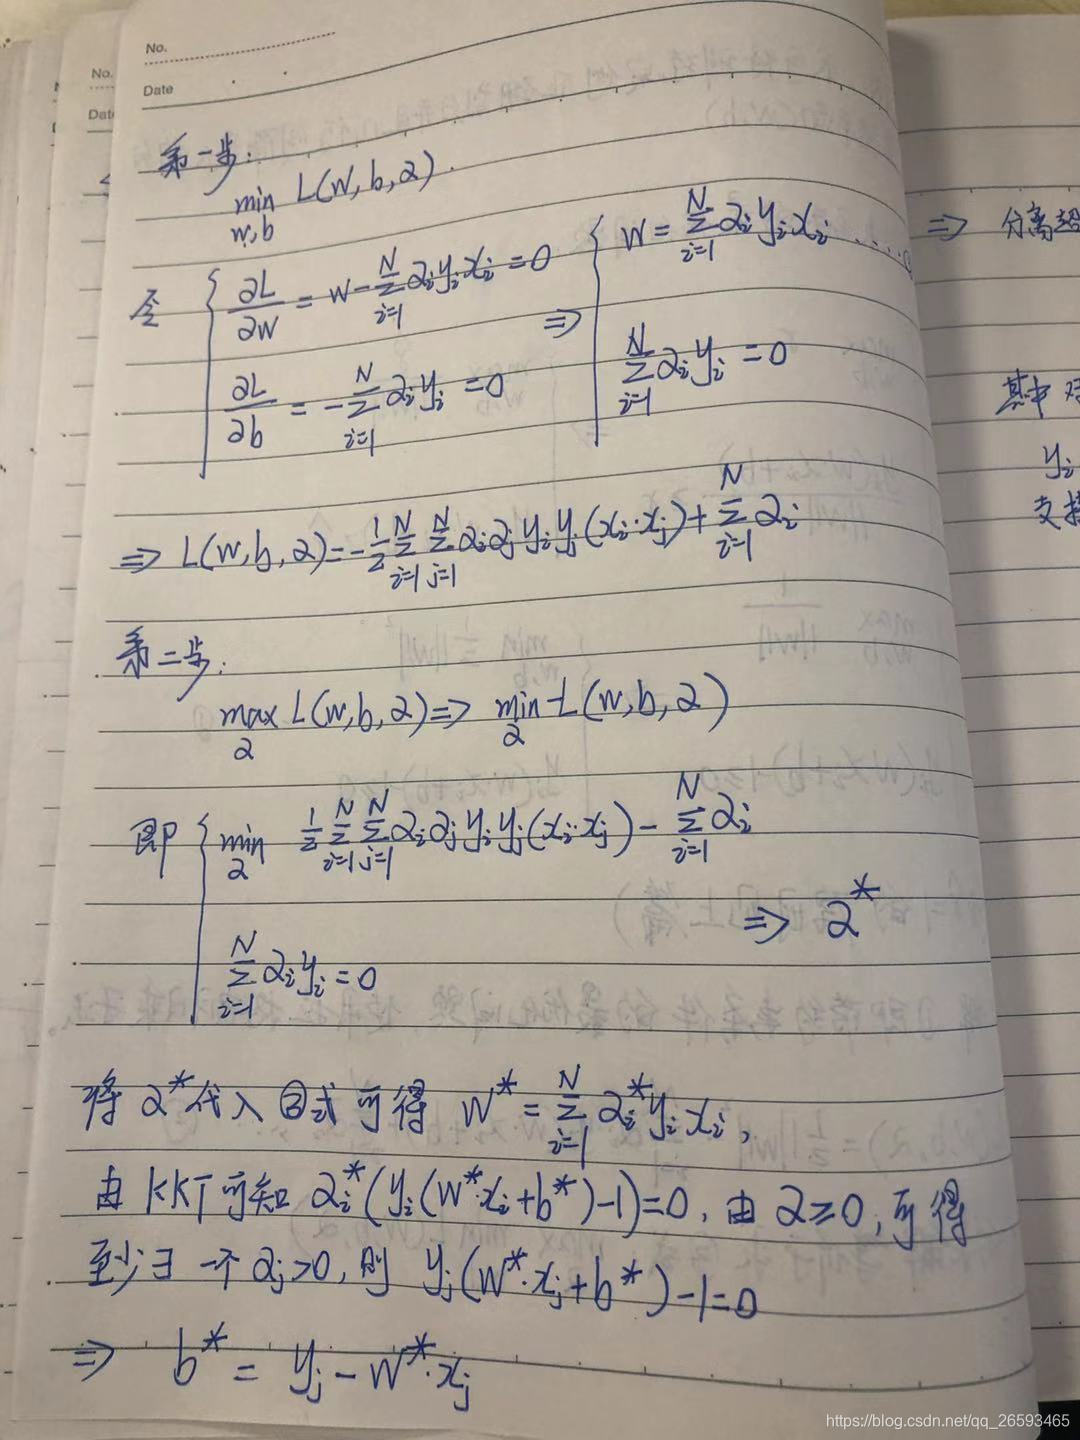 No.
Date
No.
Date
第一步:
min L(w,b,α).
w,b
令 { ∂L/∂w = w - Σ_{i=1}^{N} α_i y_i x_i = 0
∂L/∂b = - Σ_{i=1}^{N} α_i y_i = 0
⇒ { w = Σ_{i=1}^{N} α_i y_i x_i ......
Σ_{i=1}^{N} α_i y_i = 0
⇒ 分离超
其中
y_j
支持
⇒ L(w,b,α) = -1/2 Σ_{i=1}^{N} Σ_{j=1}^{N} α_i α_j y_i y_j (x_i·x_j) + Σ_{i=1}^{N} α_i
第二步:
max_α L(w,b,α) ⇒ min_α -L(w,b,α)
即 { min_α 1/2 Σ_{i=1}^{N} Σ_{j=1}^{N} α_i α_j y_i y_j (x_i·x_j) - Σ_{i=1}^{N} α_i
Σ_{i=1}^{N} α_i y_i = 0
⇒ α*
将α*代入②式可得 w* = Σ_{i=1}^{N} α_i* y_i x_i,
由KKT可知 α_i*(y_i(w*·x_i+b*)-1)=0, 由 α≥0, 可得
至少∃一个 α_j>0, 则 y_j(w*·x_j+b*)-1=0
⇒ b* = y_j - w*·x_j
https://blog.csdn.net/qq_26593465